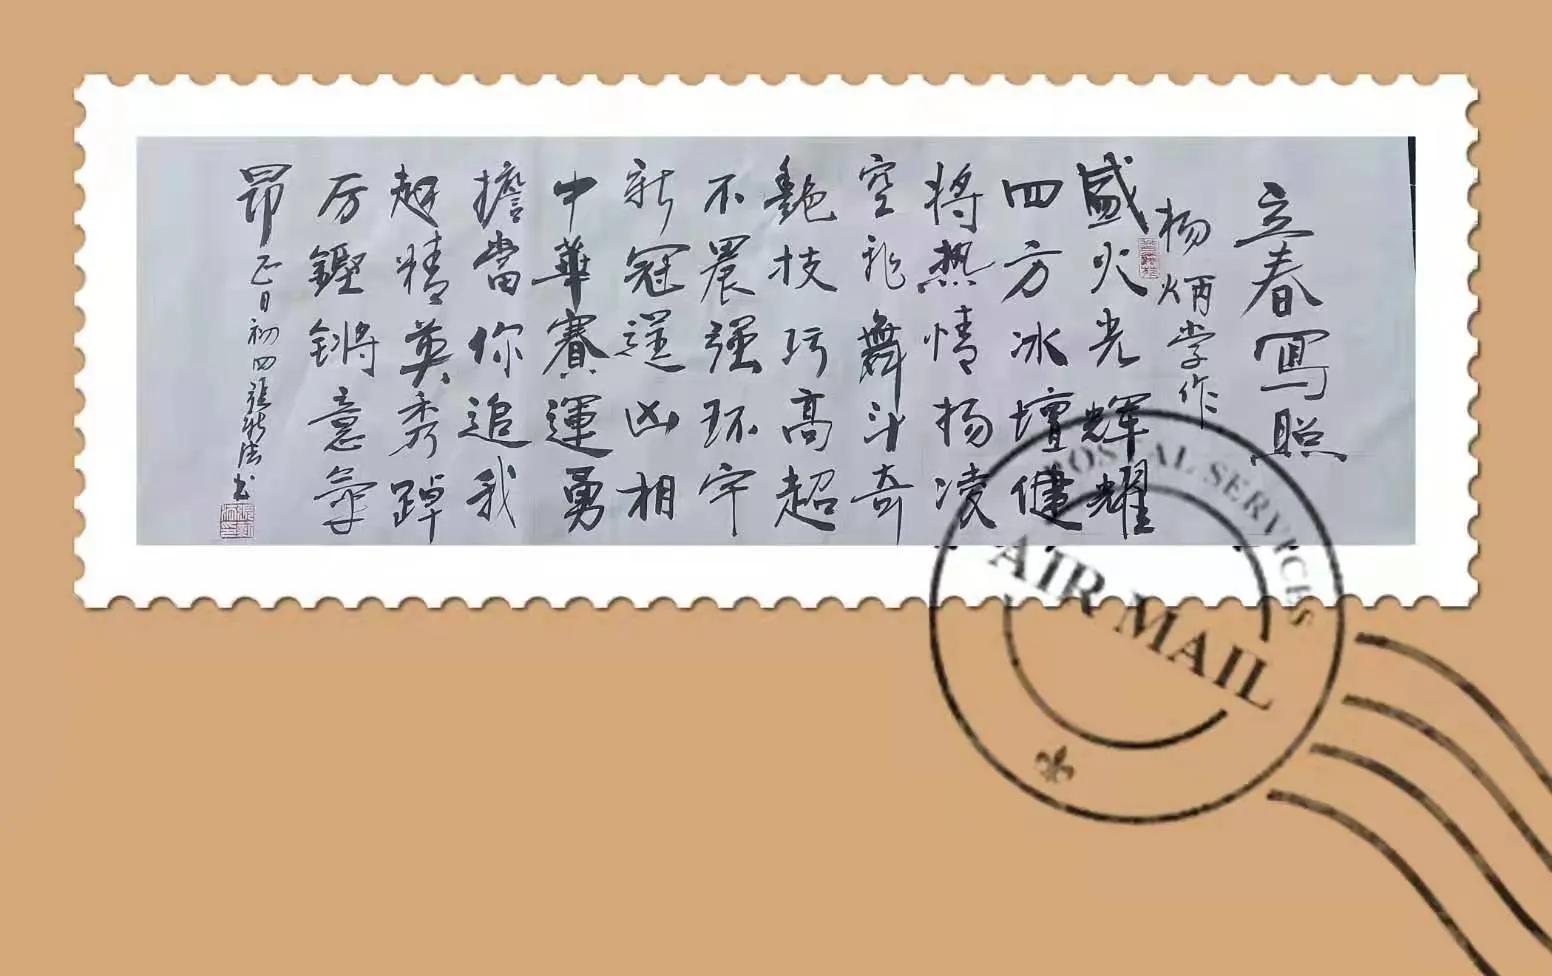 立春寫照
杨炳学作
盛火光輝耀
四方冰壇健
将热情扬凌
空飛舞斗奇
艷技巧高超
不畏强环宇
新冠逞凶相
中華賽運勇
擔當你追我
趕精英秀踔
厉鏗鏘意氣
昂
正月初四張书
POSTAL SERVICES
AIR MAIL